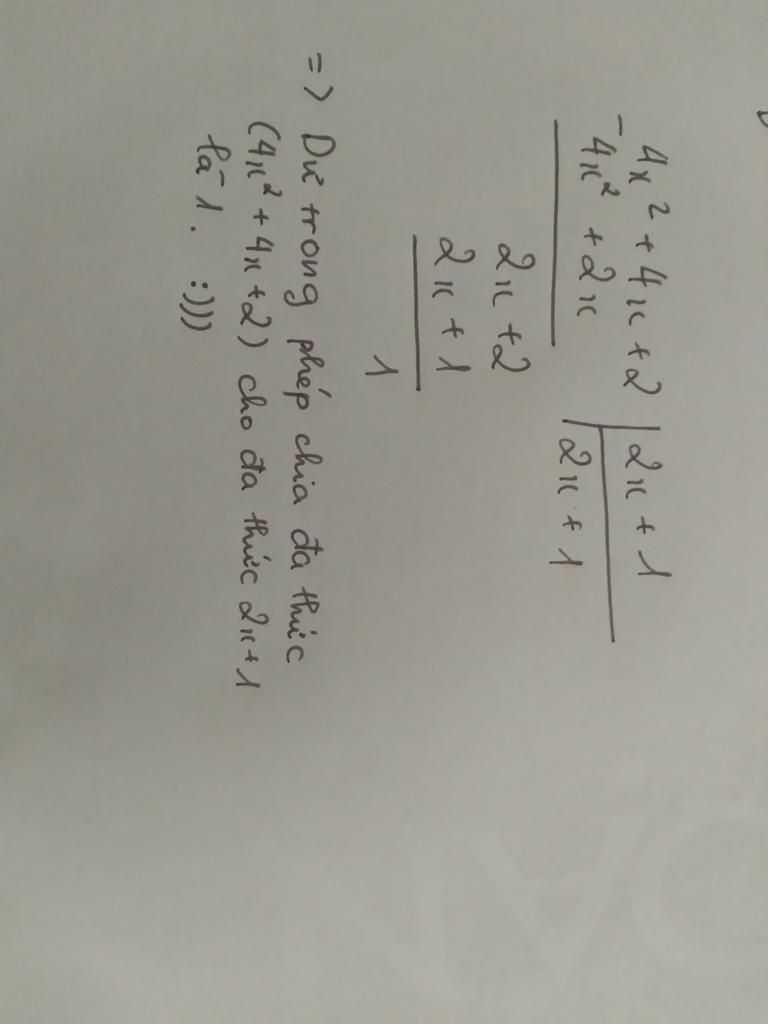 4x² + 4x + 2 | 2x + 1
- 4x² + 2x | 2x + 1
2x + 2
2x + 1
1
=> Dư trong phép chia đa thức
(4x² + 4x + 2) cho đa thức 2x + 1
là 1. :)))